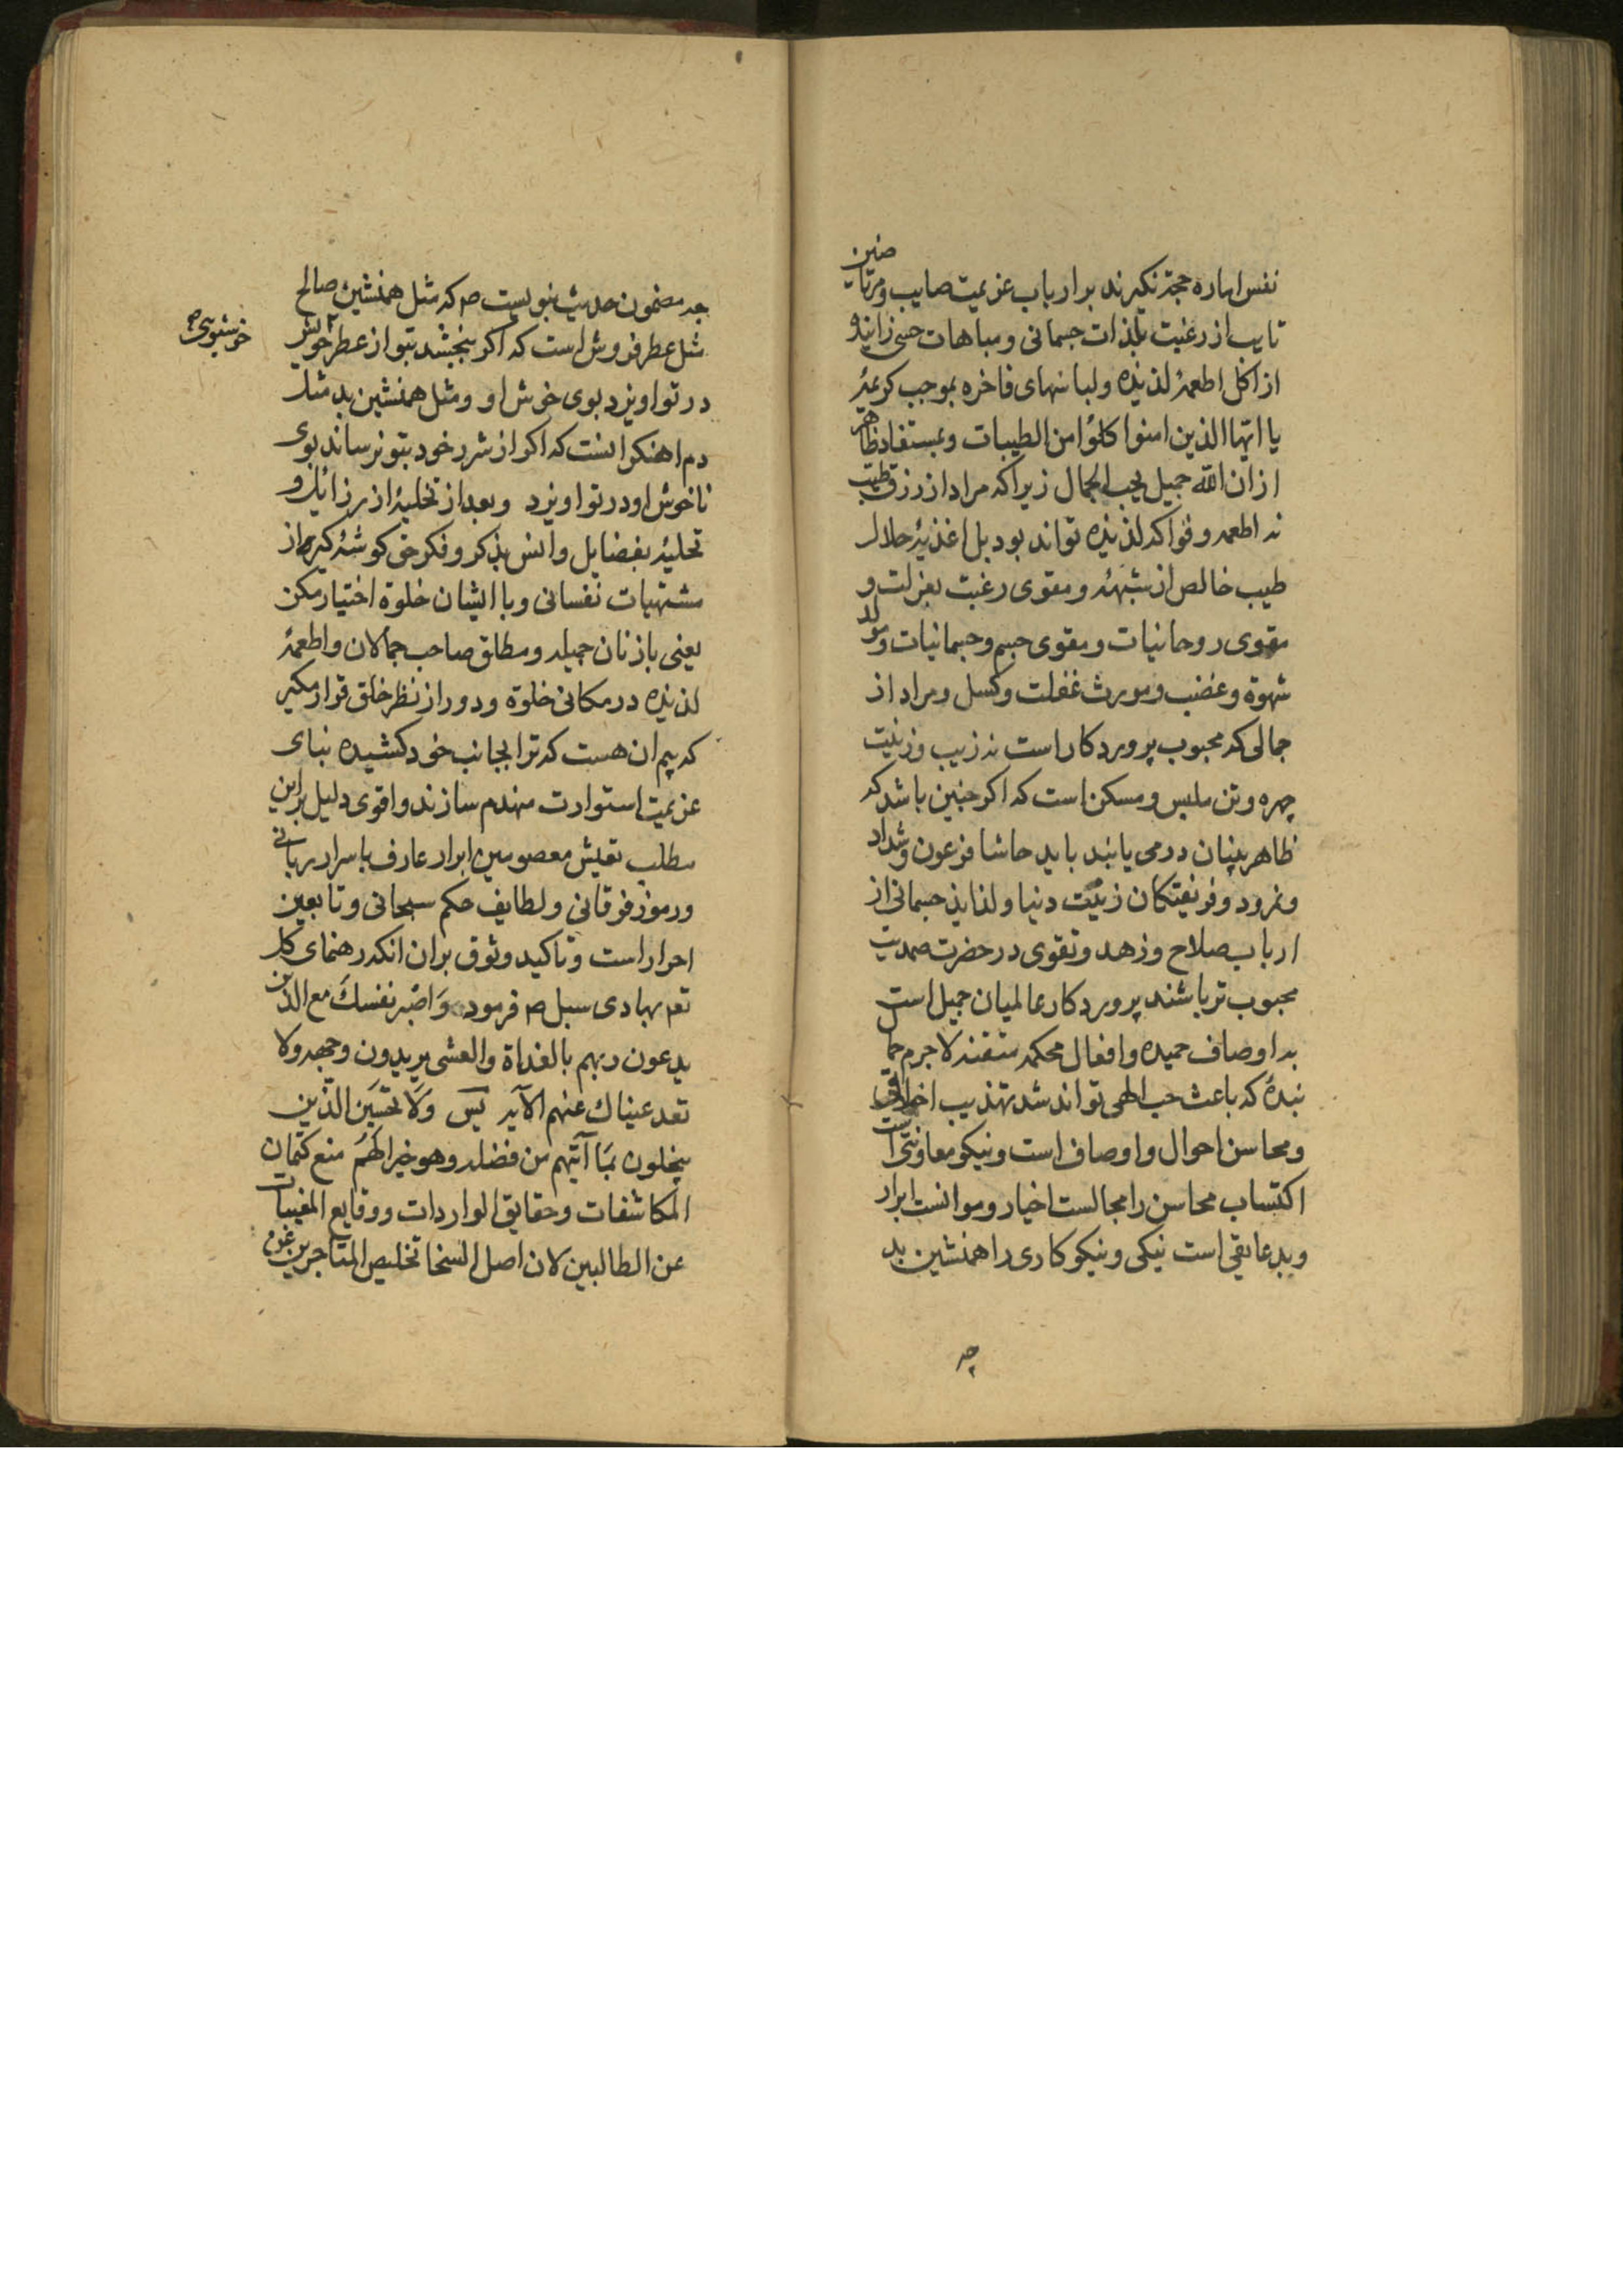 نفس اماره حجة نکیرند بر ارباب عزیمت صایب و مرتاضین
تایب از رغبت بلذات جسمانی و مباهات حسی زایند و
از اکل اطعمهٔ لذیذه و لباسهای فاخره بموجب کریمهٔ
یا ایها الذین امنوا کلوا من الطیبات و بمستفاد ظاهر
از ان الله جمیل یحب الجمال زیرا که مراد از رزق طیب
نه اطعمه و فواکه لذیذه تواند بود بل اغذیهٔ حلال
طیب خالص از شبهه و مقوی رغبت بعزلت و
مقوی روحانیات و مقوی جسم و جسمانیات و مولد
شهوة و غضب و مورث غفلت و کسل و مراد از
جمالی که محبوب پروردکار است نه زیب و زینت
چهره و تن ملبس و مسکن است که اکر چنین باشد که
ظاهر بینان درمی یابند باید حاشا فرعون و شداد
و نمرود و فریفتکان زینت دنیا و لذایذ جسمانی از
ارباب صلاح و زهد و تقوی در حضرت صمدیت
محبوب تر باشند پروردکار عالمیان جمیل است
به اوصاف حمیده و افعال محکمه متقنه لا جرم جمال
بندهٔ که باعث حب الهی تواند شد تهذیب اخلاق
و محاسن احوال و اوصاف است و نیکو معاونتی است
اکتساب محاسن را مجالست اخیار و موانست ابرار
و بد عایقی است نیکی و نیکو کاری را همنشین بد
چه
چه مضمون حدیث نبویست ص که مثل همنشین صالح
مثل عطر فروش است که اکر نبخشد بتو از عطر خویش
خوشبوی
در تو اویزد بوی خوش او و مثل همنشین بد مثل
دم اهنکرانست که اکر از شرر خود بتو نرساند بوی
ناخوش او در تو اویزد و بعد از تخلیهٔ از رزائل و
تحلیهٔ بفضایل و انس بذکر و فکر حق کوشهٔ کیر از
مشتهیات نفسانی و با ایشان خلوة اختیار مکن
یعنی با زنان جمیله و مطلق صاحب جمالان و اطعمهٔ
لذیذه در مکانی خلوة و دور از نظر خلق قرار مکیر
که بیم ان هست که ترا بجانب خود کشیده بنای
عزیمت استوارت منهدم سازند و اقوی دلیل براین
مطلب تعیش معصومین ابرار عارف باسرار ربانی
و رموز فرقانی و لطایف حکم سبحانی و تابعین
احرار است و تاکید وثوق بران انکه رهنمای کل
تعم بهادی سبل ص فرموده وَاصْبِر نفسكَ مع الذین
یدعون ربهم بالغداة والعشی یریدون وجهه ولا
تعد عیناك عنهم الآیه پس وَلَا تحسَبَن الذّین
یبخلون بمَا آتیهم من فضله وهو خیرا لَهُم منع کتمان
المکاشفات وحقایق الواردات ووقایع المغیبات
عن الطالبین لان اصل السخا تخلیص المتاجرین عن